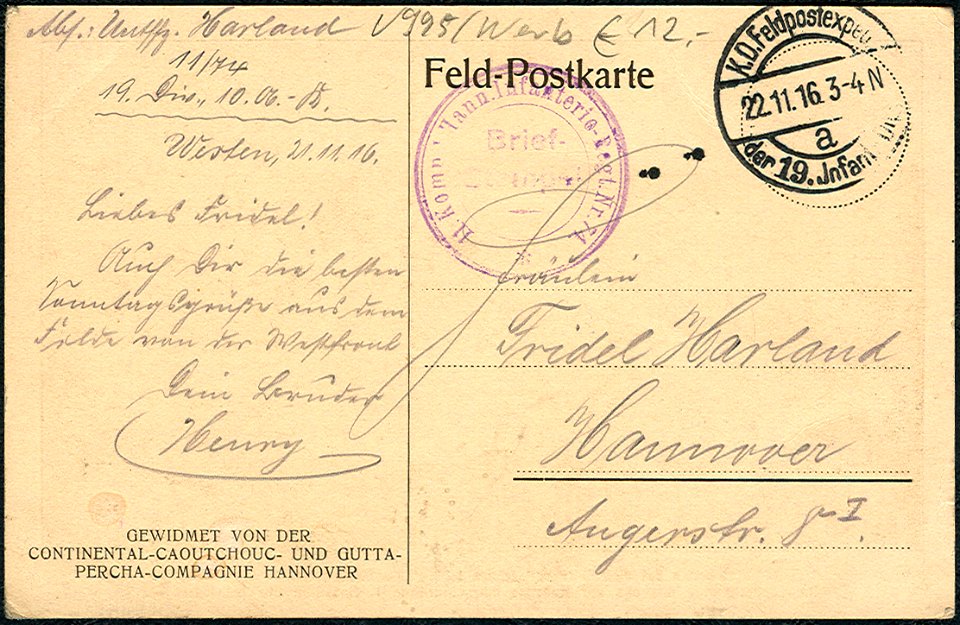 Abs.: Untffz. Harland
V995/Werb € 12.-
11/74
19. Div., 10. A.-K.
Westen, 21.11.16.
Liebes Fridel!
Auch Dir die besten
Sonntagsgrüße aus dem
Felde von der Westfront
Dein Bruder
Henry
GEWIDMET VON DER
CONTINENTAL-CAOUTCHOUC- UND GUTTA-
PERCHA-COMPAGNIE HANNOVER
Feld-Postkarte
11. Komp. Hann. Infanterie-Regt. Nr. 74
Brief-
Stempel
K.D. Feldpostexped.
22.11.16. 3-4 N
a
der 19. Infant.
Fräulein
Fridel Harland
Hannover
Angerstr. 8 I